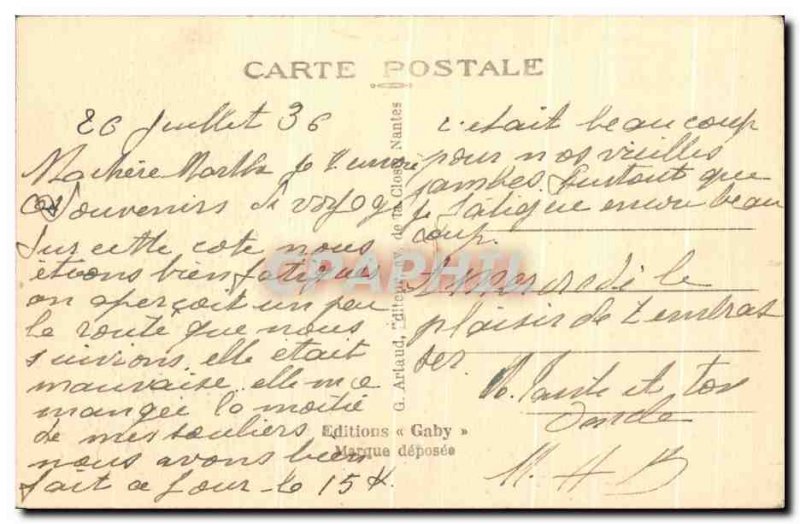 CARTE POSTALE
26 Juillet 36
Ma chère Marthe je t'envoi
ces Souvenirs de voyage
Sur cette cote nous
etions bien fatigués
on aperçoit un peu
la route que nous
suivions elle était
mauvaise elle m'a
mangée la moitié
de mes souliers
nous avons bien
fait ce jour-là 15 K
c'etait beaucoup
pour nos vieilles
jambes Surtout que
je fatigue encore beau
coup.
A Mercredi le
plaisir de t'embras
ser.
Ta Tante et ton
Oncle
M. H B
G. Artaud, Editeur, av. de la Close, Nantes
Editions « Gaby »
Marque déposée
CPAPHIL